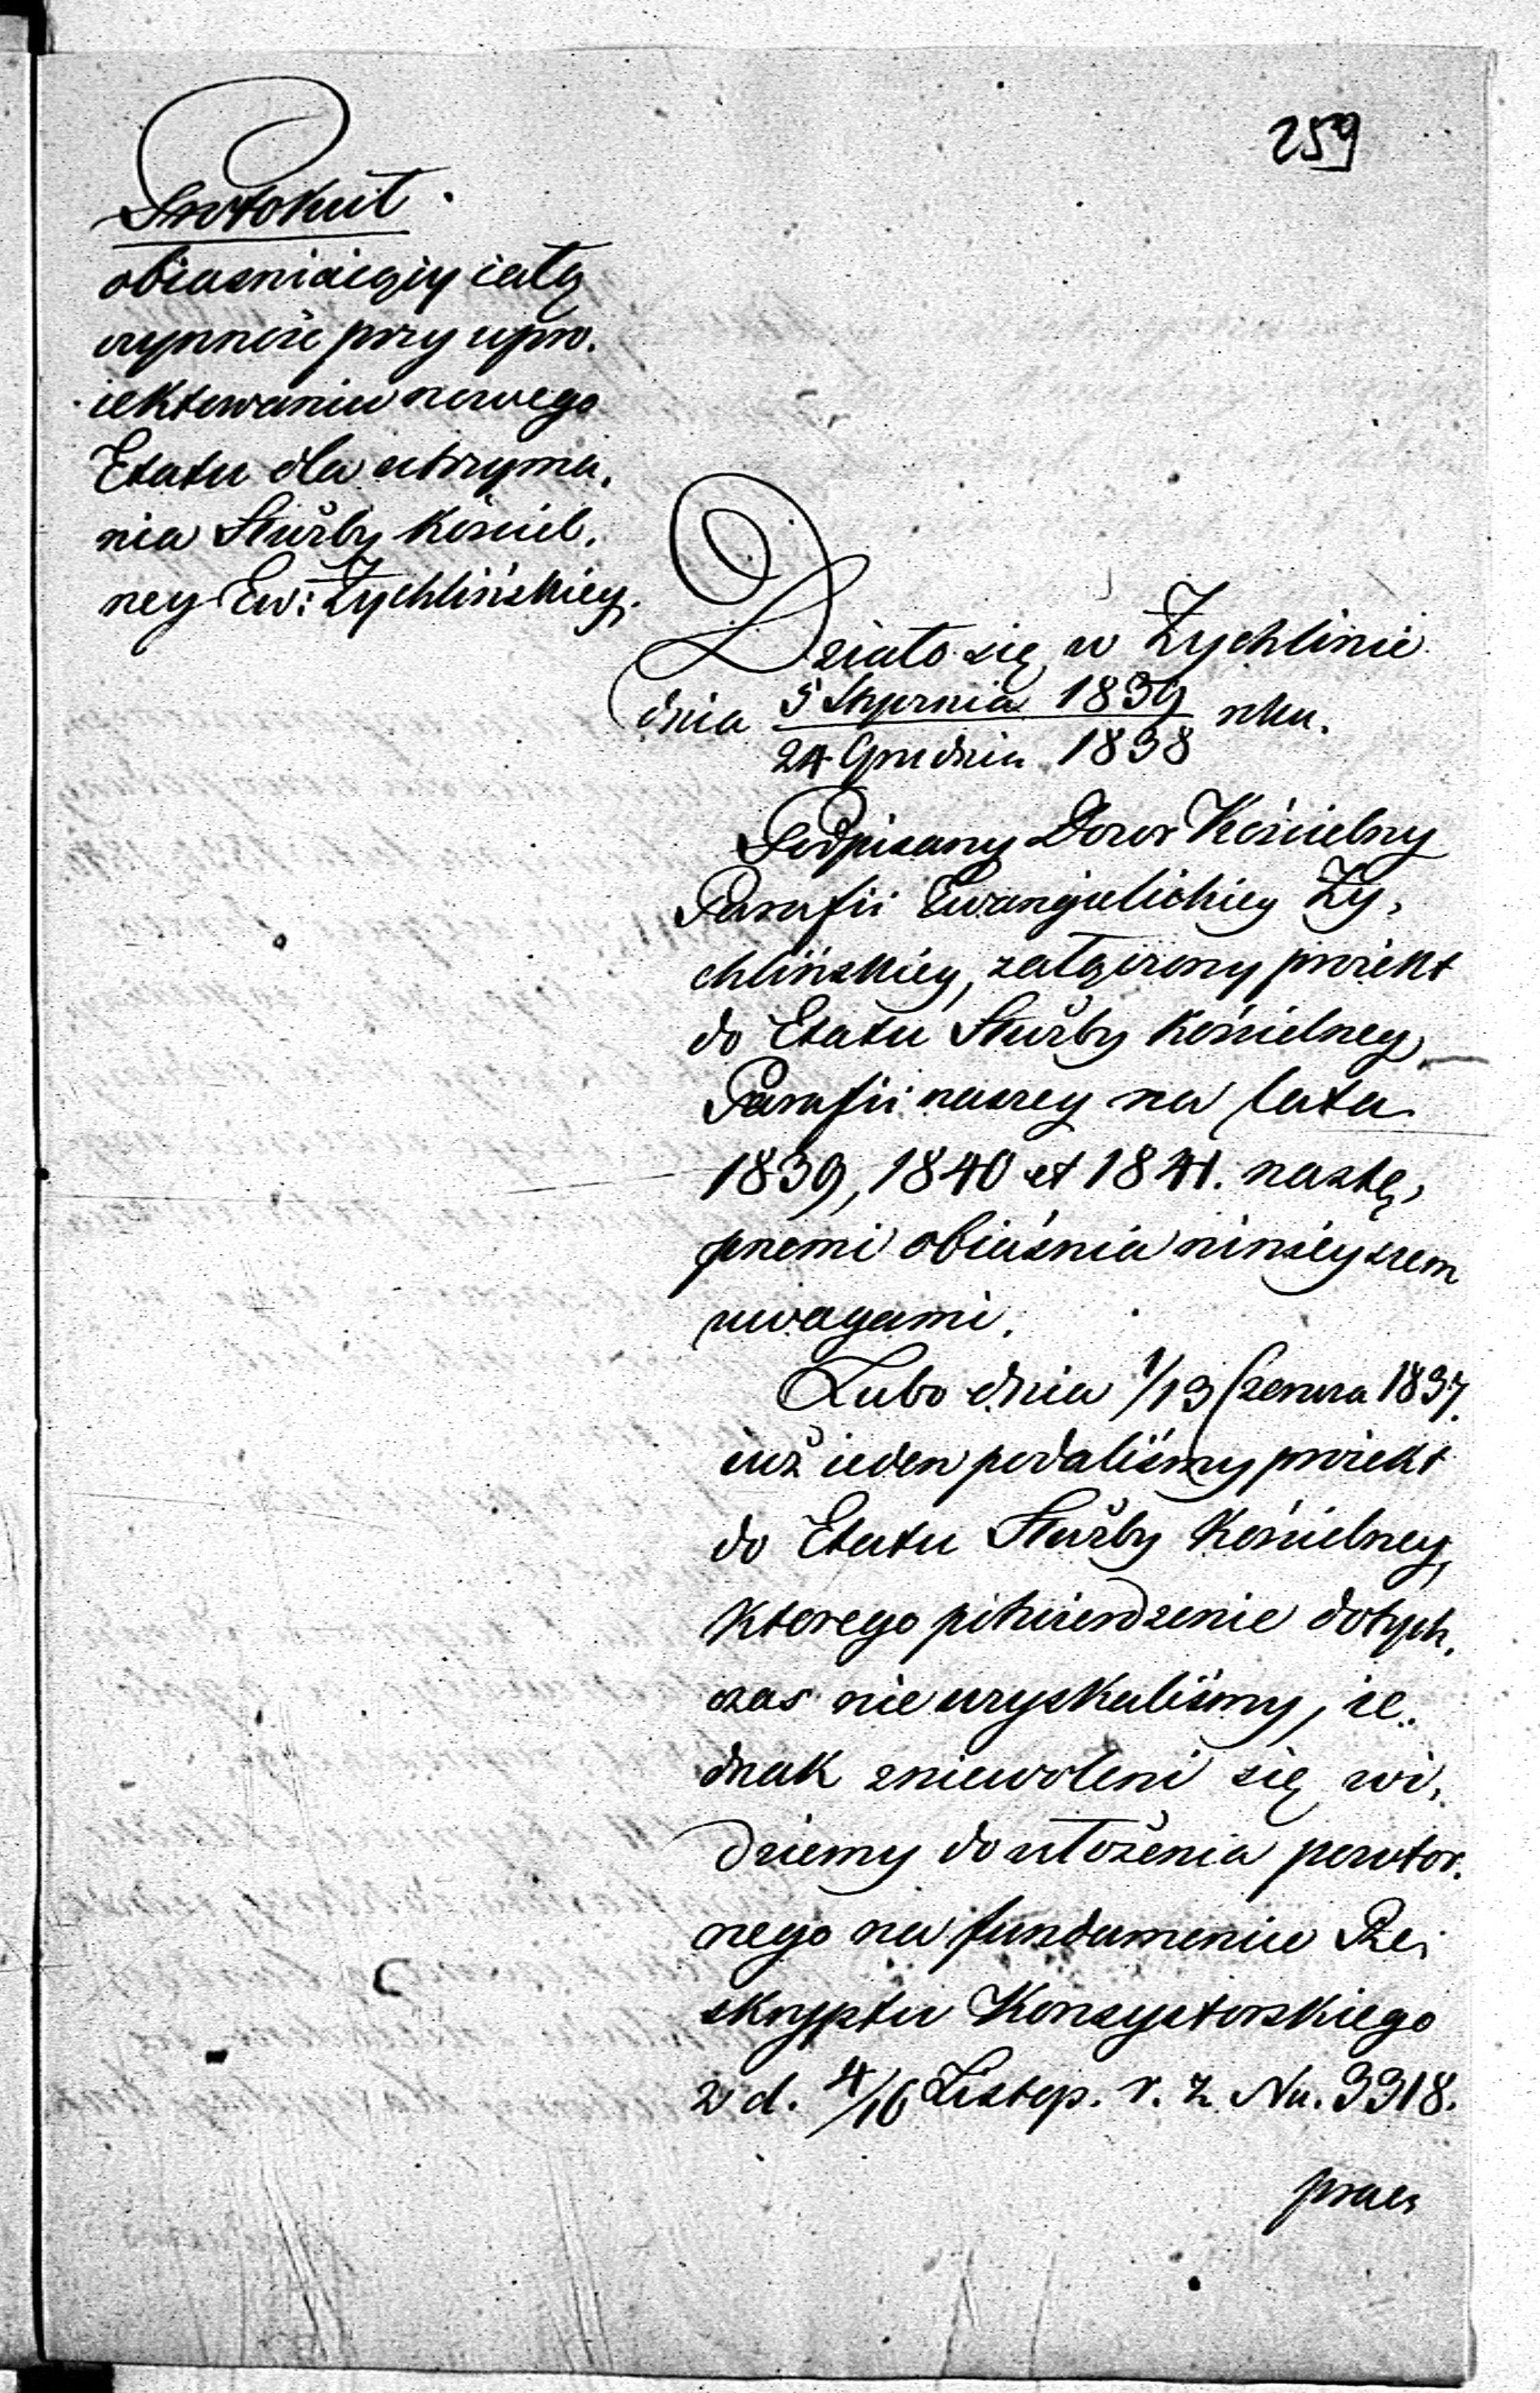 259
Protokuł.
obiasniaiący całą
czynność przy upro.
iektowaniu nowego
Etatu dla utrzyma.
nia Służby Kościel.
ney Ew: Żychlińskiey.
Działo się w Żychlinie
dnia 5 Stycznia 1839 roku.
24 Grudnia 1838
Podpisany Dozor Kościelny
Parafii Ewangielickiey Ży,
chlińskiey, załączony proiekt
do Etatu Służby Kościelney
Parafii naszey na lata
1839, 1840 et 1841. nastę,
pnemi obiaśnia ninieyszem
uwagami.
Lubo dnia 1/13 Czerwca 1837.
iuż ieden podaliśmy proiekt
do Etatu Służby Kościelney,
ktorego potwierdzenie dotych.
czas nie uzyskaliśmy, ie.
dnak zniewoleni się wi,
dziemy do ułożenia powtor.
nego na fundamencie Re,
skryptu Konsystorskiego
z d. 4/16 Listop. r. z. Nu. 3318.
praes